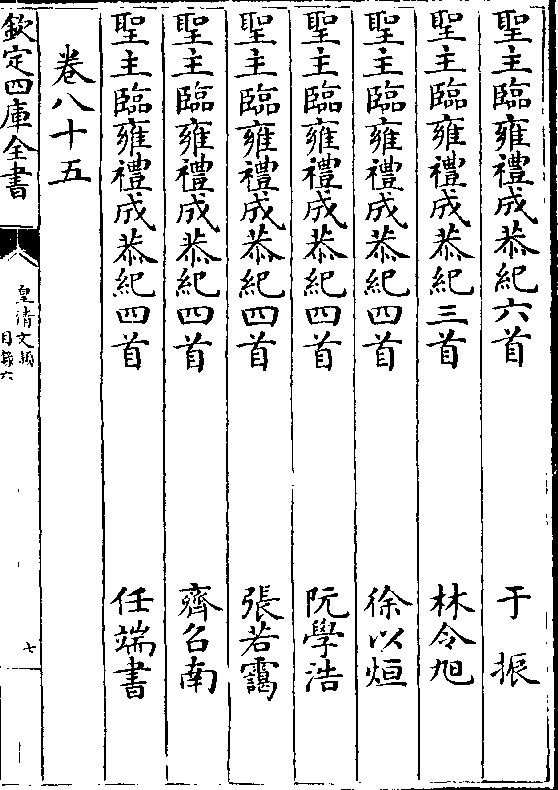 聖主臨雍禮成恭紀六首 于振
聖主臨雍禮成恭紀三首 林令旭
聖主臨雍禮成恭紀四首 徐以烜
聖主臨雍禮成恭紀四首 阮學浩
聖主臨雍禮成恭紀四首 張若靄
聖主臨雍禮成恭紀四首 齊召南
聖主臨雍禮成恭紀四首 任端書
卷八十五
欽定四庫全書
皇清文穎
目錄六
七